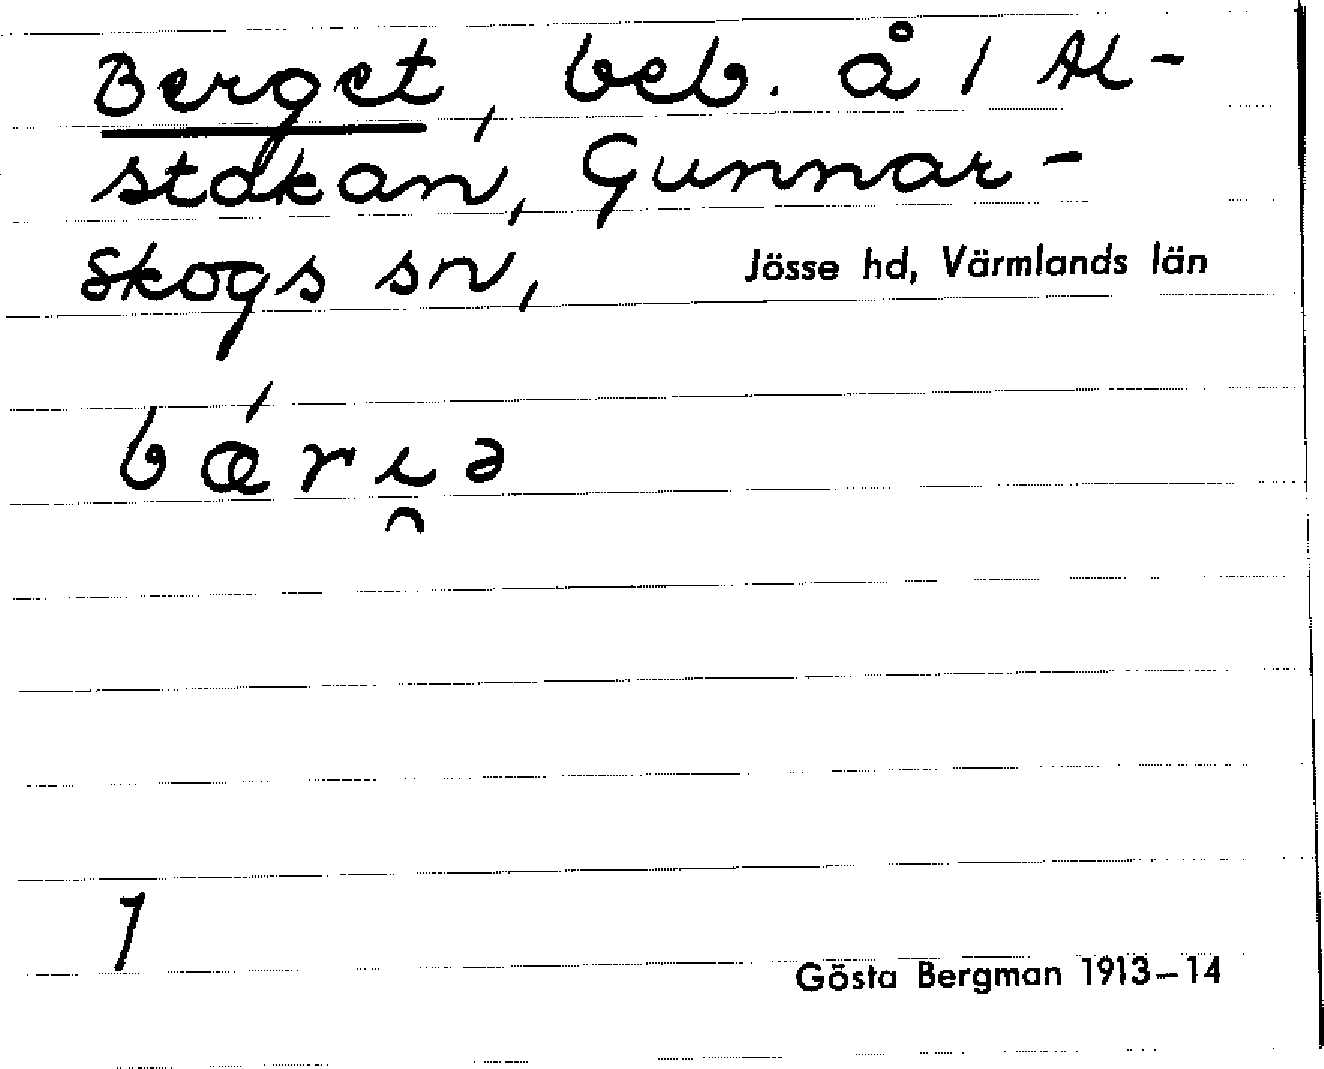 Berget, beb. å 1 Al-
stakan, Gunnar-
skogs sn, Jösse hd, Värmlands län
bæ´ri̯ə
1
Gösta Bergman 1913–14